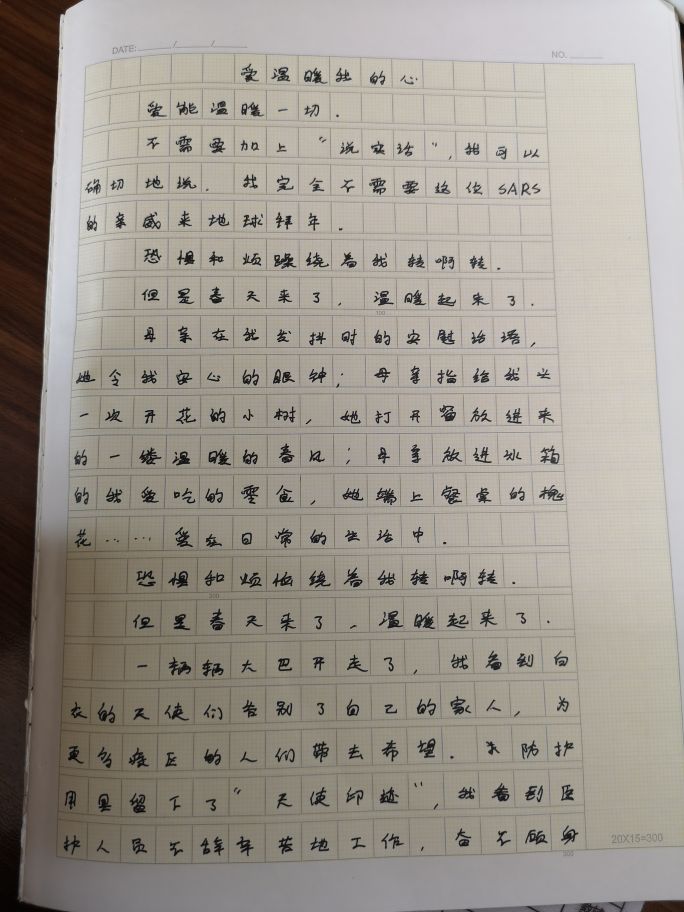 DATE: / /
NO.
爱温暖我的心
爱能温暖一切.
不需要加上“说实话”,我可以
确切地说.我完全不需要这位SARS
的亲戚来地球拜年.
恐惧和烦躁绕着我转啊转.
但是春天来了,温暖起来了.
100
母亲在我发抖时的安慰话语,
她令我安心的眼神;母亲指给我
一次开花的小树,她打开窗放进来
的一缕温暖的春风;母亲放进冰箱
的我爱吃的零食,她端上餐桌的槐
花……爱在日常的生活中.
恐惧和烦恼绕着我转啊转.
200
但是春天来了,温暖起来了.
一辆辆大巴开走了,我看到白
衣的天使们告别了自己的家人,为
更多疫区的人们带去希望.防护
用具留下了“天使印迹”,我看到医
护人员不辞辛苦地工作,奋不顾身
20X15=300
300